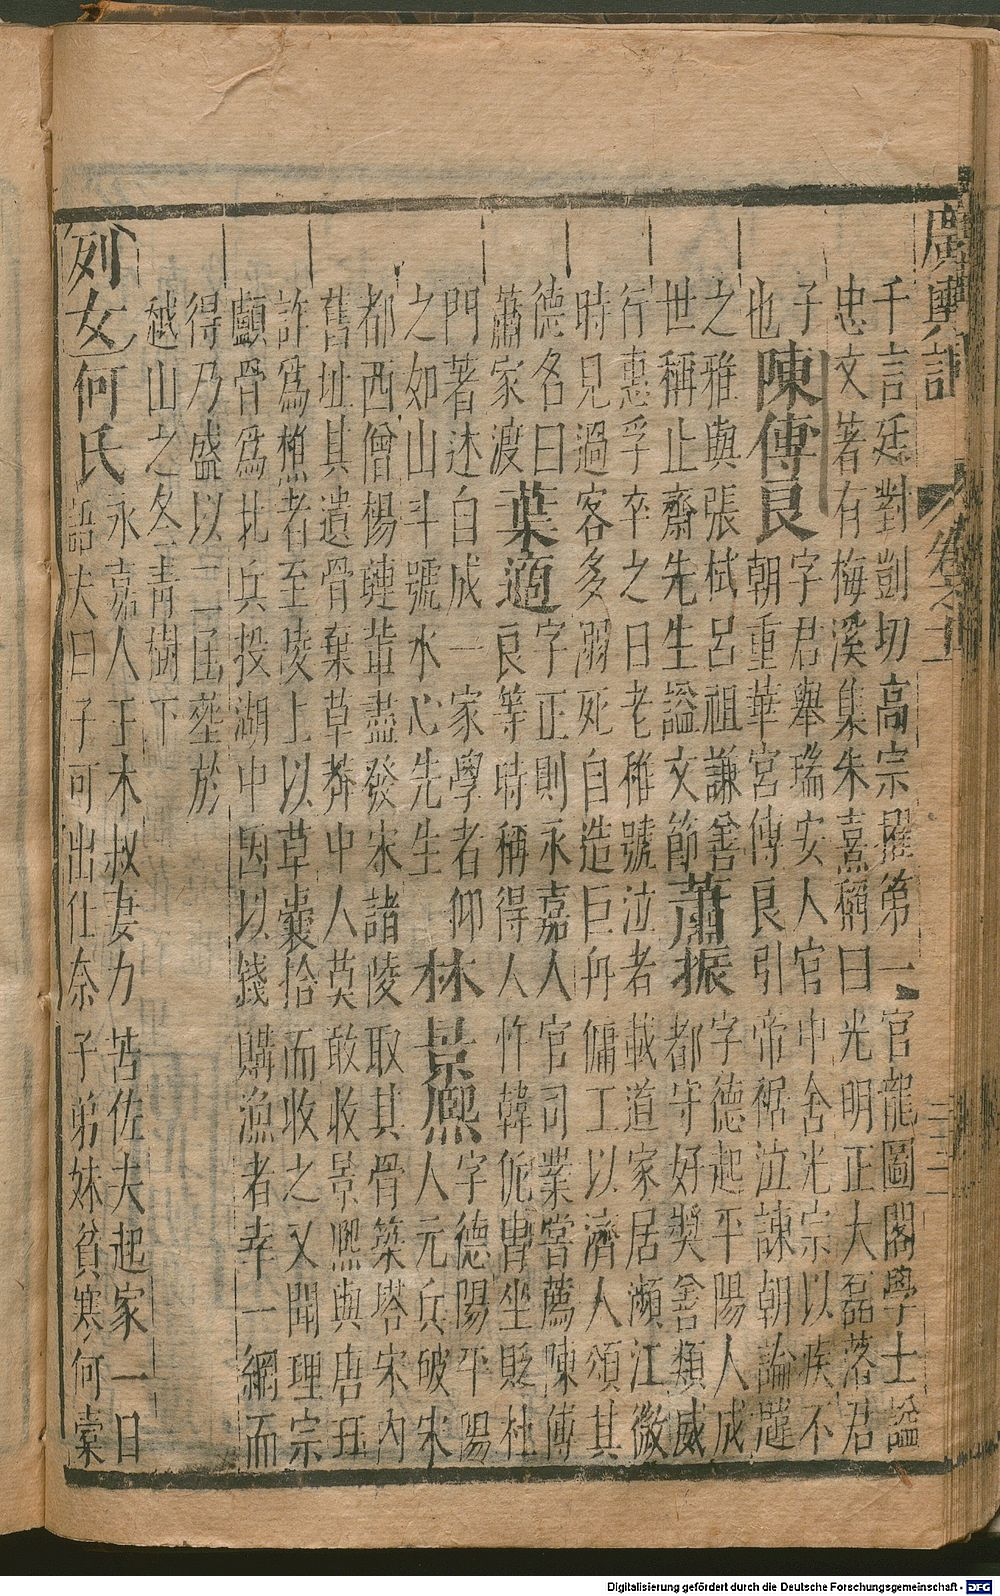 廣輿記
卷之十一
千言廷對剴切高宗擢第一官龍圖閣學士謚
忠文著有梅溪集朱熹稱曰光明正大磊落君
子
也
陳傅良
字君舉瑞安人官中舍光宗以疾不
朝重華宮傅良引帝裾泣諫朝論韙
之雅與張栻呂祖謙善
世稱止齋先生謚文節
蕭振
字德起平陽人成
都守好獎善類威
行惠孚卒之日老稚號泣者載道家居瀕江微
時見過客多溺死自造巨舟傭工以濟人頌其
德名曰
蕭家渡
葉適
字正則永嘉人官司業嘗薦陳傅
良等時稱得人忤韓侂冑坐貶杜
門著述自成一家學者仰
之如山斗號水心先生
林景熙
字德陽平陽
人元兵破宋
都西僧楊璉輩盡發宋諸陵取其骨築塔宋內
舊址其遺骨棄草莽中人莫敢收景熙與唐珏
詐為樵者至陵上以草囊拾而收之又聞理宗
顱骨為北兵投湖中因以錢購漁者幸一網而
得乃盛以二匣塟於
越山之冬青樹下
列女
何氏
永嘉人王木叔妻力苦佐夫起家一日
語夫曰子可出仕奈子弟妹貧寒何橐
Digitalisierung gefördert durch die Deutsche Forschungsgemeinschaft - DFG